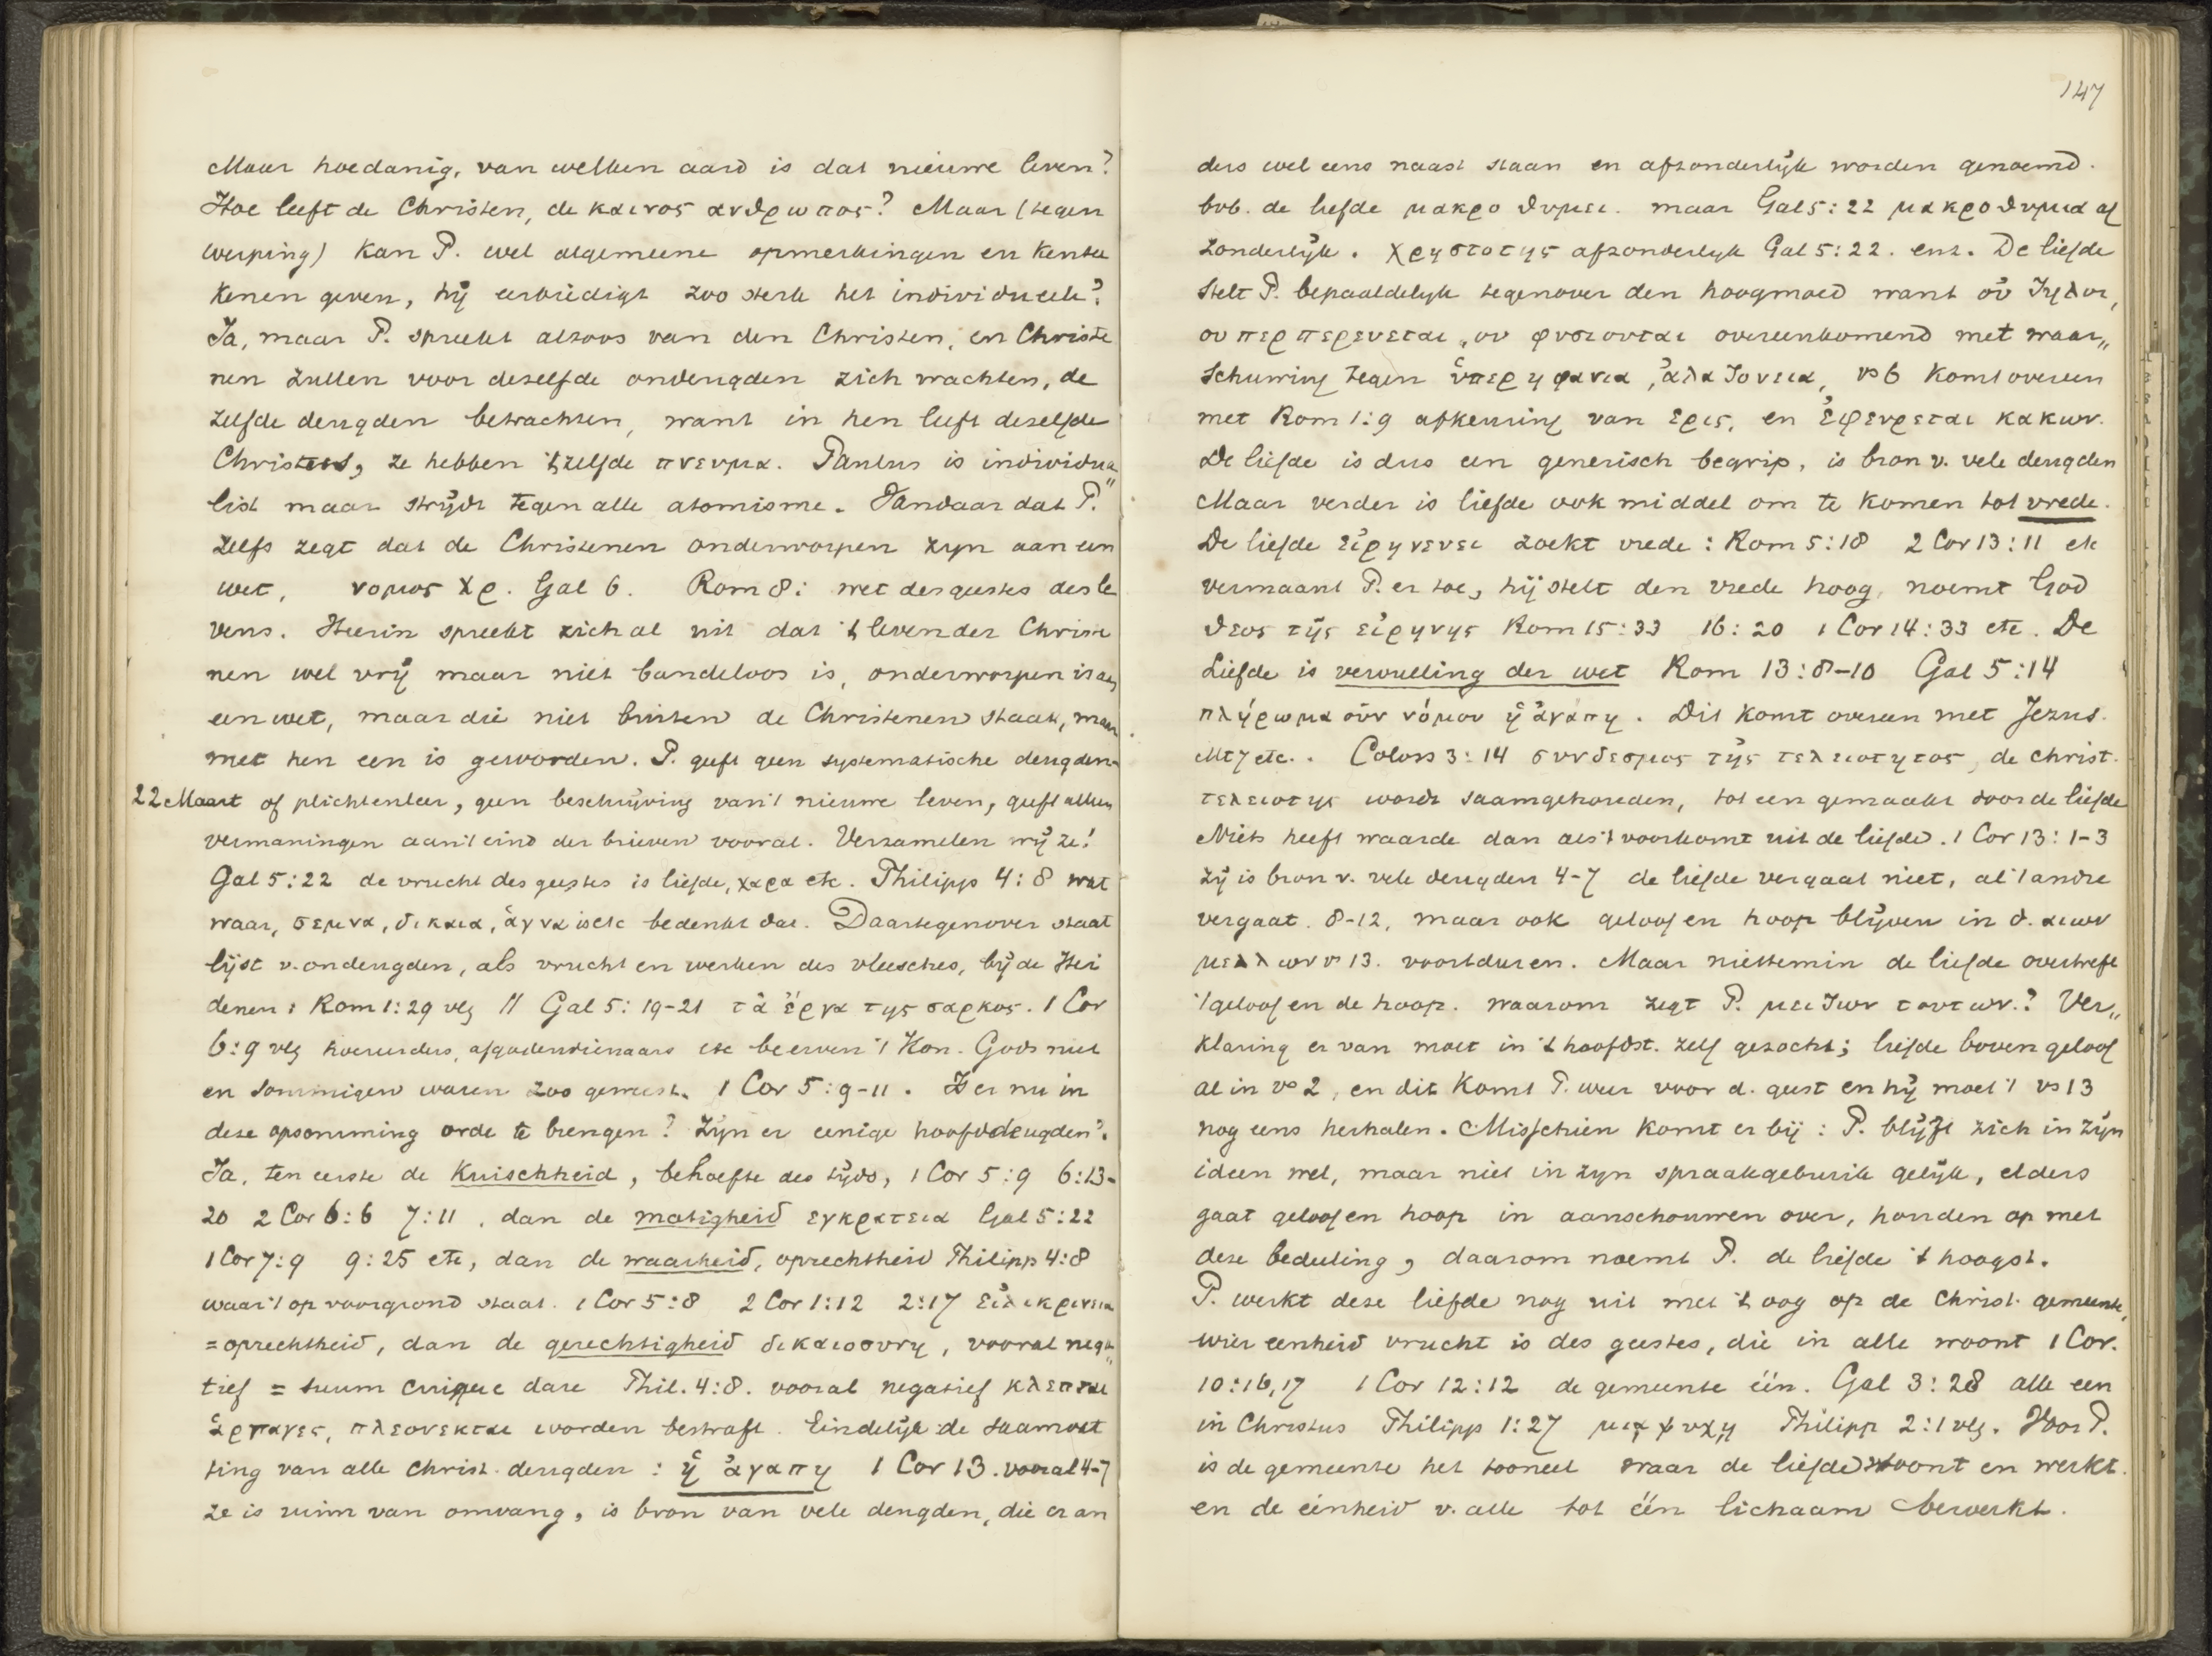 Maar hoedanig, van welken aard is dat nieuwe leven?
Hoe leeft de Christen, de καινος ανθρωπος? Maar (tegen
werping) kan P. wel algemeene opmerkingen en kentee
kenen geven, hij eerbiedigt zoo sterk het individueele?
Ja, maar P. spreekt altoos van den Christen, en Christe
nen zullen voor dezelfde ondeugden zich wachten, de
zelfde deugden betrachten, want in hen leeft dezelfde
Christus, ze hebben 't zelfde πνευμα. Paulus is individua„
list maar strijdt tegen alle atomisme. Vandaar dat P.
zelfs zegt dat de Christenen onderworpen zijn aan een
wet, νομος Χρ. Gal 6. Rom 8: wet des geestes des le
vens. Hierin spreekt zich al uit dat 't leven der Christe
nen wel vrij maar niet bandeloos is, onderworpen is aan
een wet, maar die niet buiten de Christenen staat, maar
met hen een is geworden. P. geeft geen systematische deugden-
22 Maart of plichtenleer, geen beschrijving van 't nieuwe leven, geeft alleen
vermaningen aan 't eind der brieven vooral. Verzamelen wij ze!
Gal 5:22 de vrucht des geestes is liefde, χαρα etc. Philipp 4:8 wat
waar, σεμνα, δικαια, ἁγνα is etc bedenkt dat. Daartegenover staat
lijst v. ondeugden, als vrucht en werken des vleesches, bij de Hei
denen: Rom 1:29 vlg // Gal 5:19-21 τὰ ἐργα της σαρκος. 1 Cor
6:9 vlg hoereerders, afgodendienaars etc beerven 't Kon. Gods niet
en sommigen waren zoo geweest. 1 Cor 5:9-11. Is er nu in
deze opsomming orde te brengen? Zijn er eenige hoofddeugden?
Ja, ten eerste de Kuischheid, behoefte des tijds, 1 Cor 5:9 6:13-
20 2 Cor 6:6 7:11, dan de matigheid εγκρατεια Gal 5:22
1 Cor 7:9 9:25 etc, dan de waarheid, oprechtheid Philipp 4:8
waar 't op voorgrond staat. 1 Cor 5:8 2 Cor 1:12 2:17 εἰλικρινεια
= oprechtheid, dan de gerechtigheid δικαιοσυνη, vooral nega„
tief = suum cuique dare Phil. 4:8. vooral negatief κλεπται
ἁρπαγες, πλεονεκται worden bestraft. Eindelijk de saamvat
ting van alle christ. deugden: ἡ ἀγαπη 1 Cor 13. vooral 4-7
ze is ruim van omvang, is bron van vele deugden, die er an
147
ders wel eens naast staan en afzonderlijk worden genoemd.
bvb. de liefde μακροθυμει. maar Gal 5:22 μακροθυμια af
zonderlijk. χρηστοτης afzonderlijk Gal 5:22. enz. De liefde
stelt P. bepaaldelijk tegenover den hoogmoed want οὐ ζηλοι,
ου περπερευεται, ου φυσιουται overeenkomend met waar„
schuwing tegen ὑπερηφανια, ἀλαζονεια, vs 6 komt overeen
met Rom 1:9 afkeuring van ἐρις, en ἐφευρεται κακων.
De liefde is dus een generisch begrip, is bron v. vele deugden
Maar verder is liefde ook middel om te komen tot vrede.
De liefde εἰρηνευει zoekt vrede: Rom 5:18 2 Cor 13:11 etc
vermaant P. er toe, hij stelt den vrede hoog, noemt God
θεος τῆς εἰρηνης Rom 15:33 16:20 1 Cor 14:33 etc. De
Liefde is vervulling der wet Rom 13:8-10 Gal 5:14
πλήρωμα οὖν νόμου ἡ ἀγαπη. Dit komt overeen met Jezus.
Mt 7 etc.. Coloss 3:14 συνδεσμος τῆς τελειοτητος, de christ.
τελειοτης wordt saamgehouden, tot een gemaakt door de liefde
Niets heeft waarde dan als 't voorkomt uit de liefde. 1 Cor 13:1-3
Zij is bron v. vele deugden 4-7 de liefde vergaat niet, al 't andre
vergaat. 8-12, maar ook geloof en hoop blijven in d. αιων
μελλων vs 13. voortduren. Maar niettemin de liefde overtreft
't geloof en de hoop. waarom zegt P. μειζων τουτων.? Ver„
klaring er van moet in 't hoofdst. zelf gezocht; liefde boven geloof
al in vs 2, en dit komt P. weer voor d. geest en hij moet 't vs 13
nog eens herhalen. Misschien komt er bij: P. blijft zich in zijn
ideen wel, maar niet in zijn spraakgebruik gelijk, elders
gaat geloof en hoop in aanschouwen over, houden op met
deze bedeeling, daarom noemt P. de liefde 't hoogst.
P. werkt deze liefde nog uit met 't oog op de Christ. gemeente,
wier eenheid vrucht is des geestes, die in alle woont 1 Cor.
10:16,17 1 Cor 12:12 de gemeente één. Gal 3:28 alle een
in Christus Philipp 1:27 μιᾳ ψυχῃ Philipp 2:1 vlg. Voor P.
is de gemeente het tooneel waar de liefde woont en werkt.
en de eenheid v. alle tot één lichaam bewerkt.